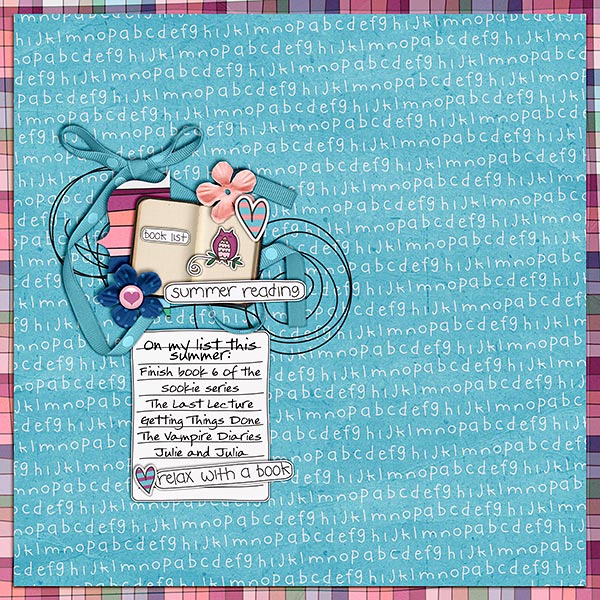 book list
summer reading
On my list this
summer:
Finish book 6 of the
sookie series
The Last Lecture
Getting Things Done
The Vampire Diaries
Julie and Julia
relax with a book